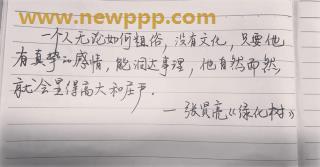 www.newppp.com
一个人无论如何粗俗，没有文化，只要他
有真挚的感情，能洞达事理，他自然而然
就会显得高大和庄严.
—张贤亮《绿化树》